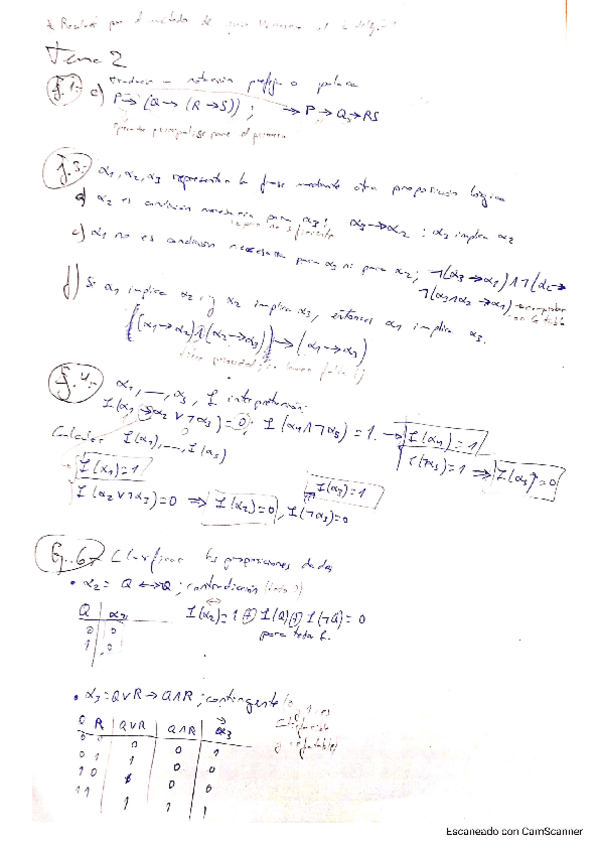 Tema 2
Ej.1.- c) Traducir a notación prefija o polaca
P→(Q→(R→S)); →P→Q→RS
Ej.3.- α1, α2, α3 representan la frase mediante otra proposición lógica
a) α2 es condición necesaria para α3; α3→α2 : α3 implica α2
c) α1 no es condición necesaria para α3 ni para α2; ¬(α3→α1)∧¬(α2→
d) Si α1 implica α2, y α2 implica α3, entonces α1 implica α3.
((α1→α2)∧(α2→α3))→(α1→α3)
Ej.4.- α1, —, α5, I interpretación:
I(α1→α2∨¬α3)=0; I(α4∧¬α5)=1. → I(α4)=1
Calcular I(α1),—,I(α5) I(¬α5)=1 ⇒ I(α5)=0
I(α1)=1 I(α3)=1
I(α2∨¬α3)=0 ⇒ I(α2)=0, I(¬α3)=0
Ej.6.- Clasificar las proposiciones dadas
• α2= Q↔¬Q; contradicción
Q α2 I(α2)=1+I(Q)+I(¬Q)=0
0 0 para toda I.
1 0
• α3=Q∨R→Q∧R; contingente
Q R Q∨R Q∧R α3
0 0 0 0 1
0 1 1 0 0
1 0 1 0 0
1 1 1 1 1
Escaneado con CamScanner